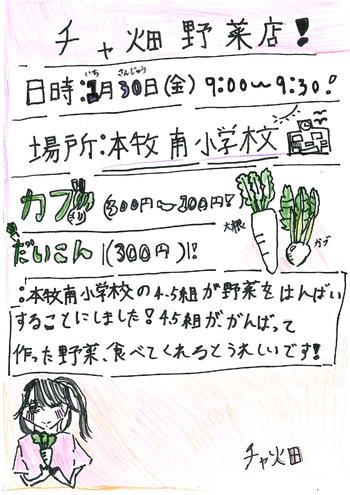 チャ畑野菜店！
日時：1月30日(金) 9:00〜9:30！
場所：本牧南小学校
カブ 200円〜300円！
大根 カブ
だいこん (300円)！
：本牧南小学校の4.5組が野菜をはんばい
することにしました！4.5組が、がんばって
作った野菜、食べてくれるとうれしいです！
チャ畑